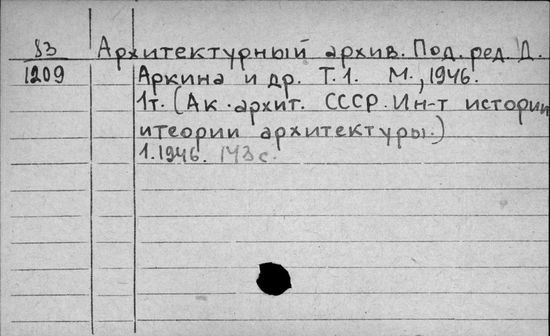 83 Архитектурный архив. Под. ред. Д.
1209 Аркина и др. Т.1. М., 1946.
1т. (Ак. архит. СССР. Ин-т истории
итеории архитектуры.)
1.1946. 143 с.